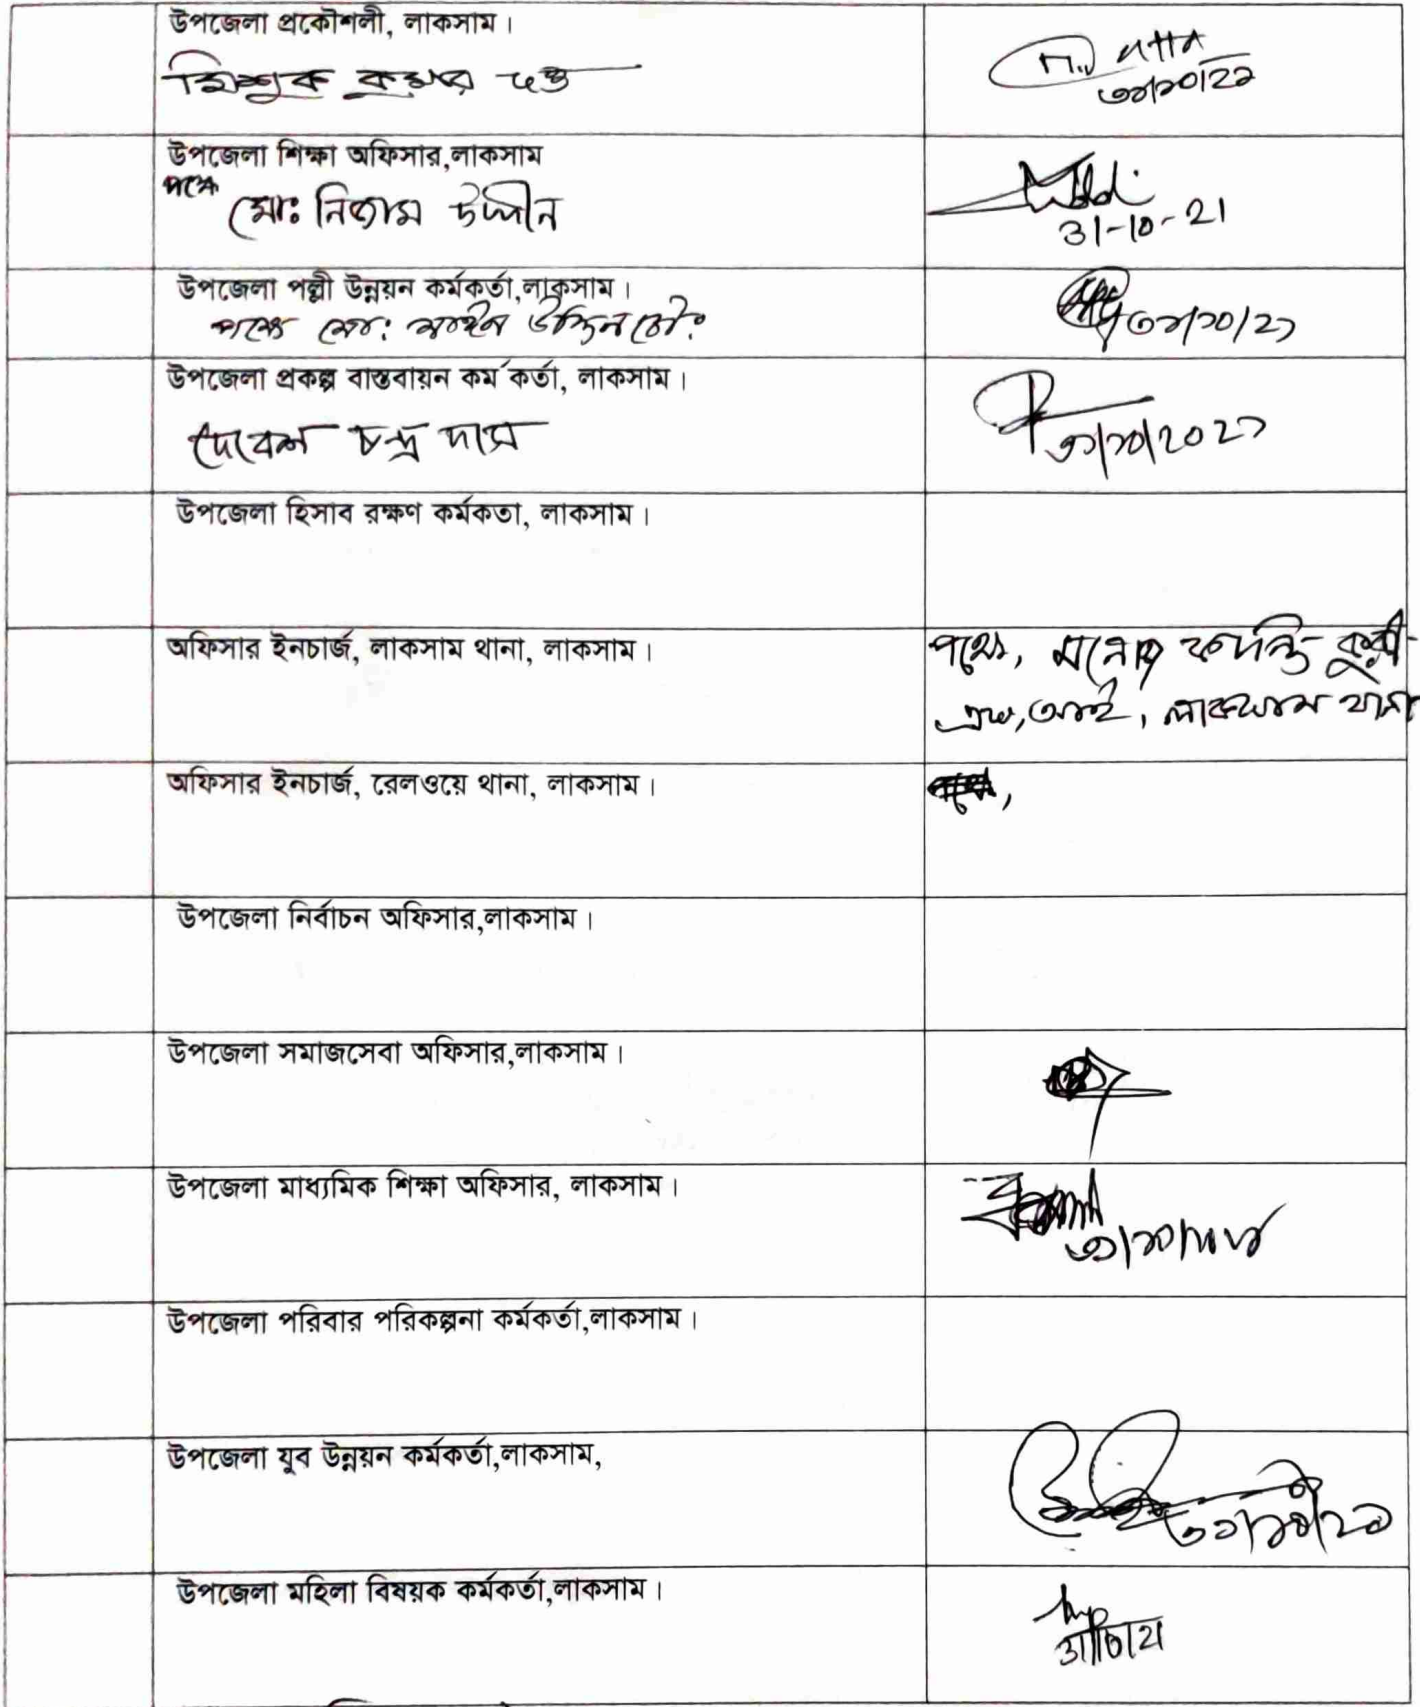 উপজেলা প্রকৌশলী, লাকসাম।
মিশুক কুমার দত্ত
৩১/১০/২১
উপজেলা শিক্ষা অফিসার,লাকসাম
পক্ষে
মোঃ নিজাম উদ্দীন
31-10-21
উপজেলা পল্লী উন্নয়ন কর্মকর্তা,লাকসাম।
পক্ষে মোঃ মাইন উদ্দিন চৌঃ
৩১/১০/২১
উপজেলা প্রকল্প বাস্তবায়ন কর্ম কর্তা, লাকসাম।
দেবেশ চন্দ্র দাস
৩১/১০/২০২১
উপজেলা হিসাব রক্ষণ কর্মকতা, লাকসাম।
অফিসার ইনচার্জ, লাকসাম থানা, লাকসাম।
পক্ষে, কান্তি কুরী
এস,আই, লাকসাম থানা
অফিসার ইনচার্জ, রেলওয়ে থানা, লাকসাম।
উপজেলা নির্বাচন অফিসার,লাকসাম।
উপজেলা সমাজসেবা অফিসার,লাকসাম।
উপজেলা মাধ্যমিক শিক্ষা অফিসার, লাকসাম।
উপজেলা পরিবার পরিকল্পনা কর্মকর্তা,লাকসাম।
উপজেলা যুব উন্নয়ন কর্মকর্তা,লাকসাম,
৩১/১০/২১
উপজেলা মহিলা বিষয়ক কর্মকর্তা,লাকসাম।